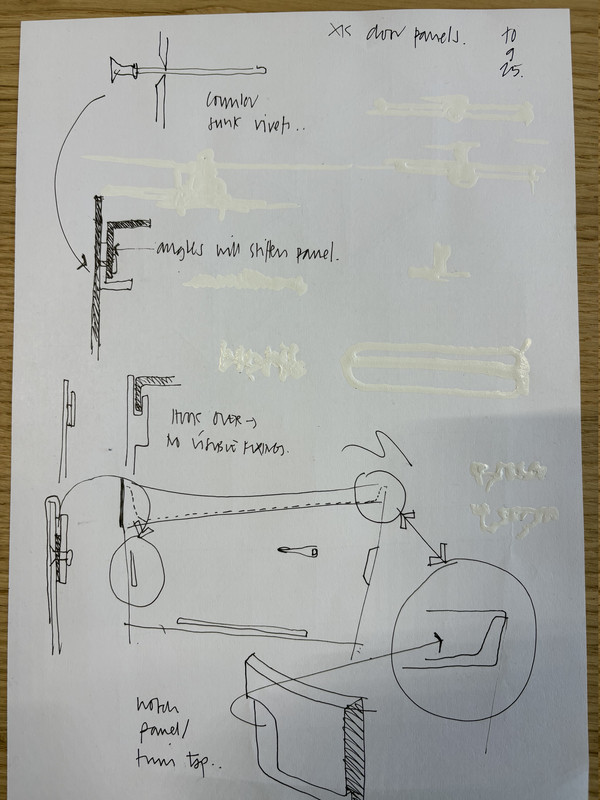 XK door panels.
to
9
25.
counter
sunk rivets..
angles will stiffen panel.
HOOK OVER →
NO VISIBLE FIXINGS.
notch
panel/
trim top..